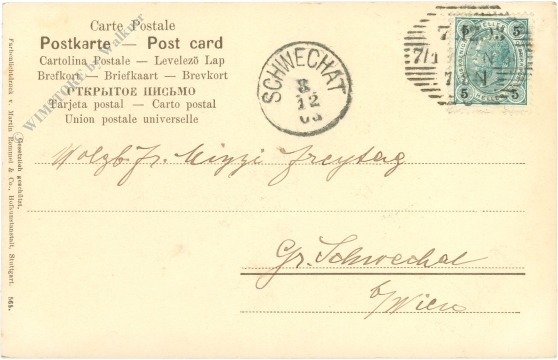 Carte Postale
Postkarte — Post card
Cartolina Postale — Levelező Lap
Brefkort — Briefkaart — Brevkort
ОТКРЫТОЕ ПИСЬМО
Tarjeta postal — Carto postal
Union postale universelle
WIMSTORY by Walküer
SCHWECHAT
8
12
03
5 5
5 5
Wolgb. Fr. Mizzi Freytag
Gr. Schwechat
b/Wien
Farbenlichtdruck v. Martin Rommel & Co., Hofkunstanstalt, Stuttgart.
Gesetzlich geschützt.
565.